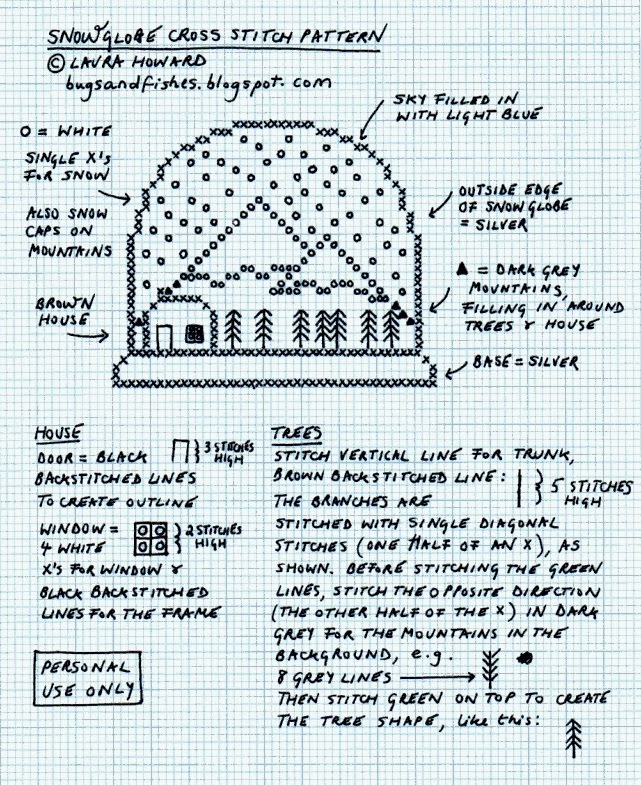 SNOWGLOBE CROSS STITCH PATTERN
© LAURA HOWARD
bugsandfishes.blogspot.com
SKY FILLED IN
WITH LIGHT BLUE
O = WHITE
SINGLE X's
FOR SNOW
ALSO SNOW
CAPS ON
MOUNTAINS
OUTSIDE EDGE
OF SNOWGLOBE
= SILVER
▲ = DARK GREY
MOUNTAINS,
FILLING IN AROUND
TREES & HOUSE
BROWN
HOUSE
BASE = SILVER
HOUSE
DOOR = BLACK
3 STITCHES
HIGH
BACKSTITCHED LINES
TO CREATE OUTLINE
WINDOW =
2 STITCHES
HIGH
4 WHITE
X's FOR WINDOW &
BLACK BACKSTITCHED
LINES FOR THE FRAME
PERSONAL
USE ONLY
TREES
STITCH VERTICAL LINE FOR TRUNK,
BROWN BACKSTITCHED LINE:
5 STITCHES
HIGH
THE BRANCHES ARE
STITCHED WITH SINGLE DIAGONAL
STITCHES (ONE HALF OF AN X), AS
SHOWN. BEFORE STITCHING THE GREEN
LINES, STITCH THE OPPOSITE DIRECTION
(THE OTHER HALF OF THE X) IN DARK
GREY FOR THE MOUNTAINS IN THE
BACKGROUND, e.g.
8 GREY LINES
THEN STITCH GREEN ON TOP TO CREATE
THE TREE SHAPE, like this: